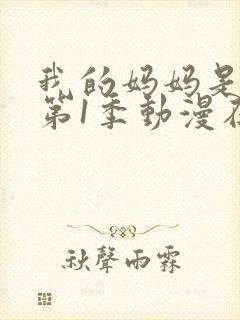 我的妈妈是
第1季動漫在
秋聲雨霖